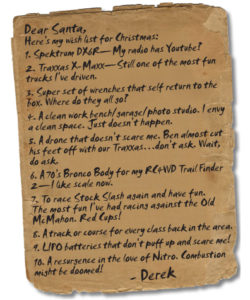 Dear Santa,
Here's my wish list for Christmas:
1. Spektrum DX6R— My radio has Youtube?
2. Traxxas X-Maxx—Still one of the most fun
trucks I've driven.
3. Super set of wrenches that self return to the
box. Where do they all go?
4. A clean work bench/garage/photo studio. I envy
a clean space. Just doesn't happen.
5. A drone that doesn't scare me. Ben almost cut
his feet off with our Traxxas...don't ask. Wait,
do ask.
6. A 70's Bronco Body for my RC4WD Trail Finder
2—I like scale now.
7. To race Stock Slash again and have fun.
The most fun I've had racing against the Old
McMahon. Red Cups!
8. A track or course for every class back in the area.
9. LIPO batteries that don't puff up and scare me!
10. A resurgence in the love of Nitro. Combustion
might be doomed!
- Derek